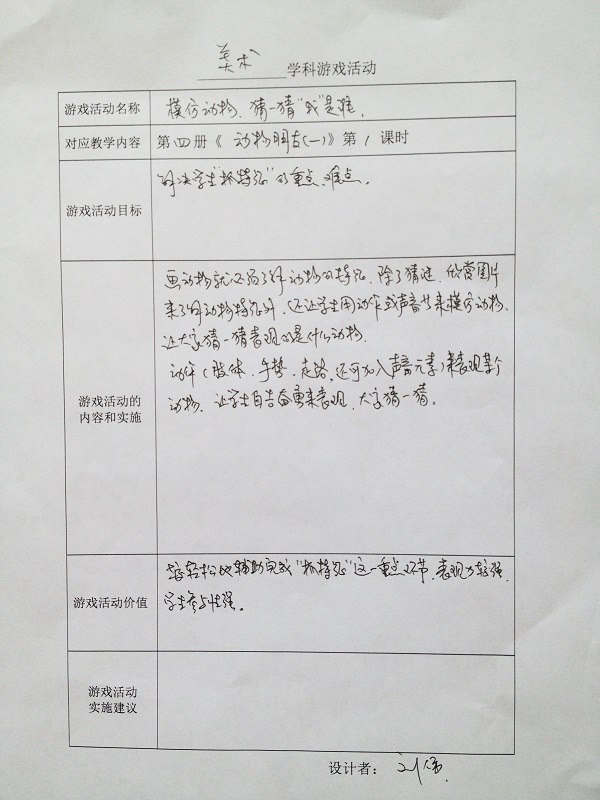 美术 学科游戏活动
游戏活动名称 模仿动物,猜一猜“我”是谁。
对应教学内容 第四册《动物朋友(一)》第1课时
游戏活动目标 解决学生“抓特征”的重点、难点。
画动物就必须了解动物的特征,除了猜谜、欣赏图片
来了解动物特征外,还让学生用动作或声音等来模仿动物,
让大家猜一猜表现的是什么动物。
动作(肢体、手势、走路,还可加入声音元素)来表现某个
动物,让学生自告奋勇来表现,大家猜一猜。
游戏活动的
内容和实施
轻松地辅助完成“抓特征”这一重点环节,表现力较强,
学生参与性强。
游戏活动价值
游戏活动
实施建议
设计者:刘